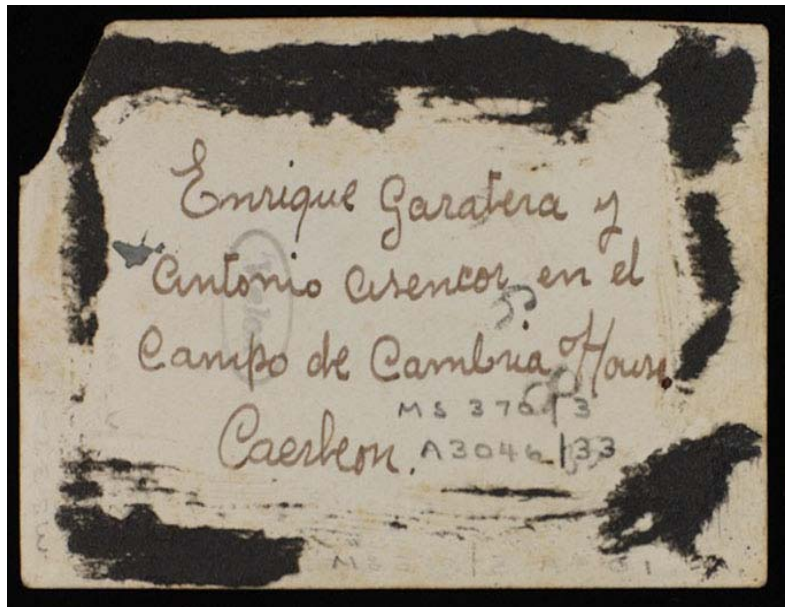 Enrique Garatera y
Antonio Asencor en el
Campo de Cambria House.
Caerleon.
MS 370/3
A3046/33